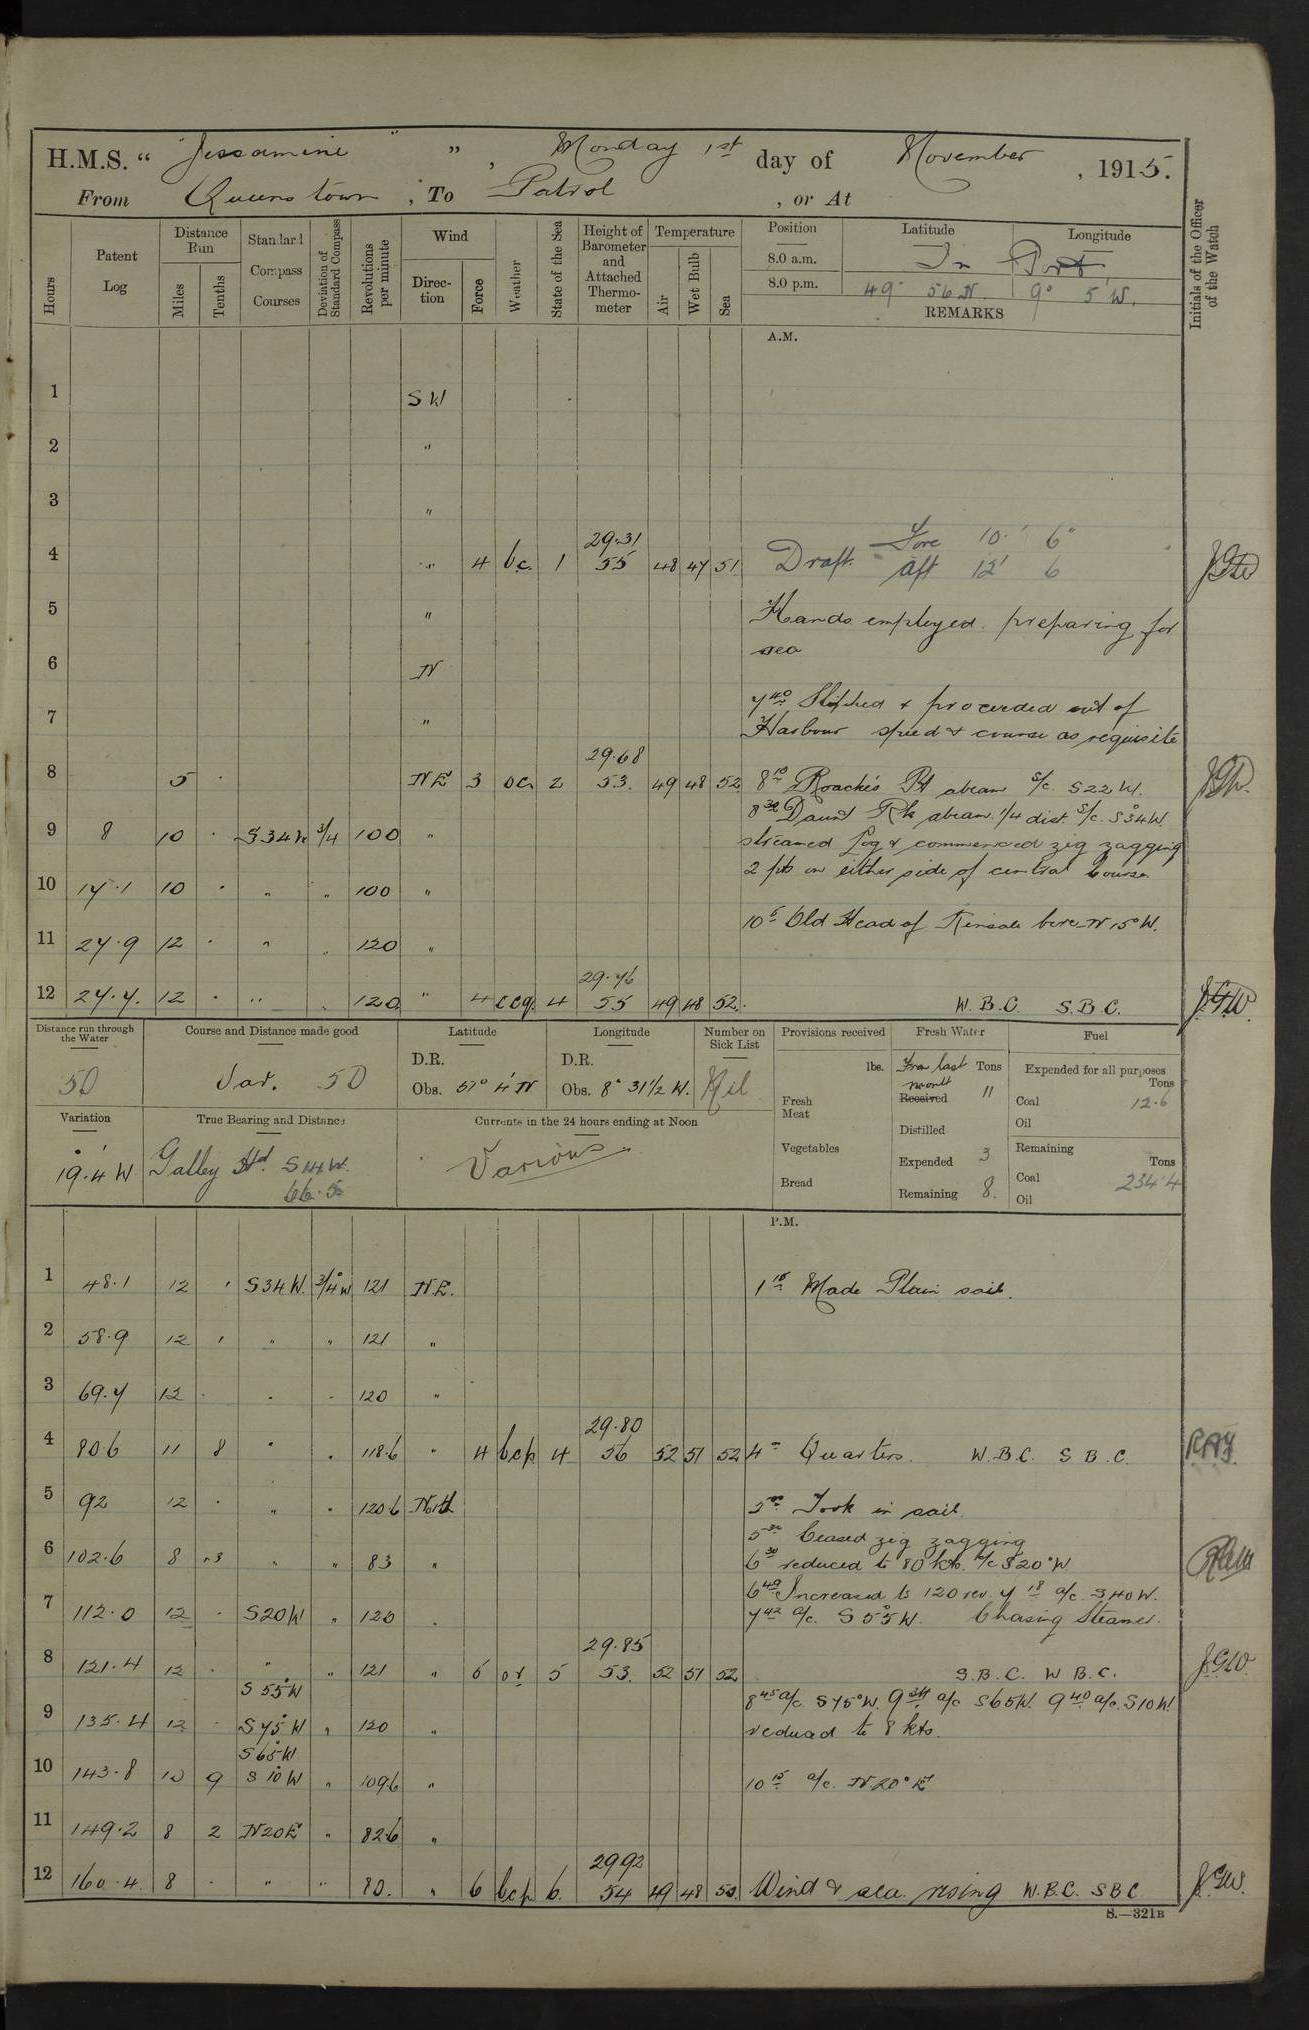 H.M.S. “ Jessamine ” , Monday 1st day of November , 1915.
From Queenstown , To Patrol , or At
Initials of the Officer of the Watch
Hours
Patent Log
Distance Run
Miles
Tenths
Standard Compass Courses
Deviation of Standard Compass
Revolutions per minute
Wind
Direction
Force
Weather
State of the Sea
Height of Barometer and Attached Thermometer
Temperature
Air
Wet Bulb
Sea
Position Latitude Longitude
8.0 a.m. In Port
8.0 p.m. 49° 56 N. 9° 5 W.
REMARKS
A.M.
1 SW
2 "
3 "
29.31
4 " 4 bc. 1 55 48 47 51 Draft Fore 10' 6"
Aft 12' 6
5 " Hands employed preparing for
sea
6 N
7 " 7 40 Slipped & proceeded out of
Harbour speed & course as requisite
29.68
8 5 . NE 3 oc 2 53. 49 48 52 8 10 Roache's Pt abeam s/c. S22W.
8 32 Daunt Rk abeam 1/4 dist. s/c. S34W.
9 8 10 . S34W 3/4 100 " streamed Log & commenced zig zagging
10 17.1 10 . " " 100 " 2 pts on either side of central Course
10 5 Old Head of Kinsale bore N15°W.
11 27.9 12 . " " 120 "
29.76
12 12 . " 120 " 4 ccq. 4 55 49 48 52. W.B.C. S.B.C. J.G.W.
Distance run through the Water
50
Course and Distance made good
Var. 50
Latitude
D.R.
Obs. 51° 4' N
Longitude
D.R.
Obs. 8° 31 1/2 W.
Number on Sick List
Nil
Variation
19.4 W
True Bearing and Distance
Galley Hd S14W.
66.5
Currents in the 24 hours ending at Noon
Various
Provisions received
lbs.
Fresh Meat
Vegetables
Bread
Fresh Water
From last month Tons
Received 11
Distilled
Expended 3
Remaining 8.
Fuel
Expended for all purposes
Tons
Coal 12.6
Oil
Remaining
Tons
Coal 234.4
Oil
P.M.
1 48.1 12 . S34W. 3/4 W 121 NE. 1 15 Made Plain sail.
2 58.9 12 . " " 121 "
3 69.7 12 . " " 120 "
29.80
4 80.6 11 8 " " 118.6 " 4 bcp. 4 56 52 51 52 4 Quarters. W.B.C. S.B.C.
5 92 12 . " " 120.6 North 5 Took in sail.
5 30 Ceased zig zagging
6 102.6 8 .3 " " 83 " 6 30 reduced to 80 a/c S20°W
6 40 Increased to 120 rev. 7 18 a/c. S40W.
7 112.0 12 . S20W " 120 . 7 42 a/c. S55°W. Chasing Steamer.
29.85
8 121.4 12 . " " 121 " 5 53. 52 51 52 S.B.C. W.B.C. J.G.W.
S 55°W
8 45 a/c. S75°W. 9 34 a/c S65W. 9 40 a/c. S10W.
9 135.4 12 . S75°W " 120 " reduced to 8 kts.
S65°W
10 143.8 10 9 S10°W " 109.6 " 10 15 a/c. N.20°E
11 149.2 8 2 N20E " 82.6 "
29.92
12 160.4. 8 . " " 80. " 6 bcp 6. 54 49 48 50. Wind & sea rising W.B.C. SBC J.G.W.
S.—321B